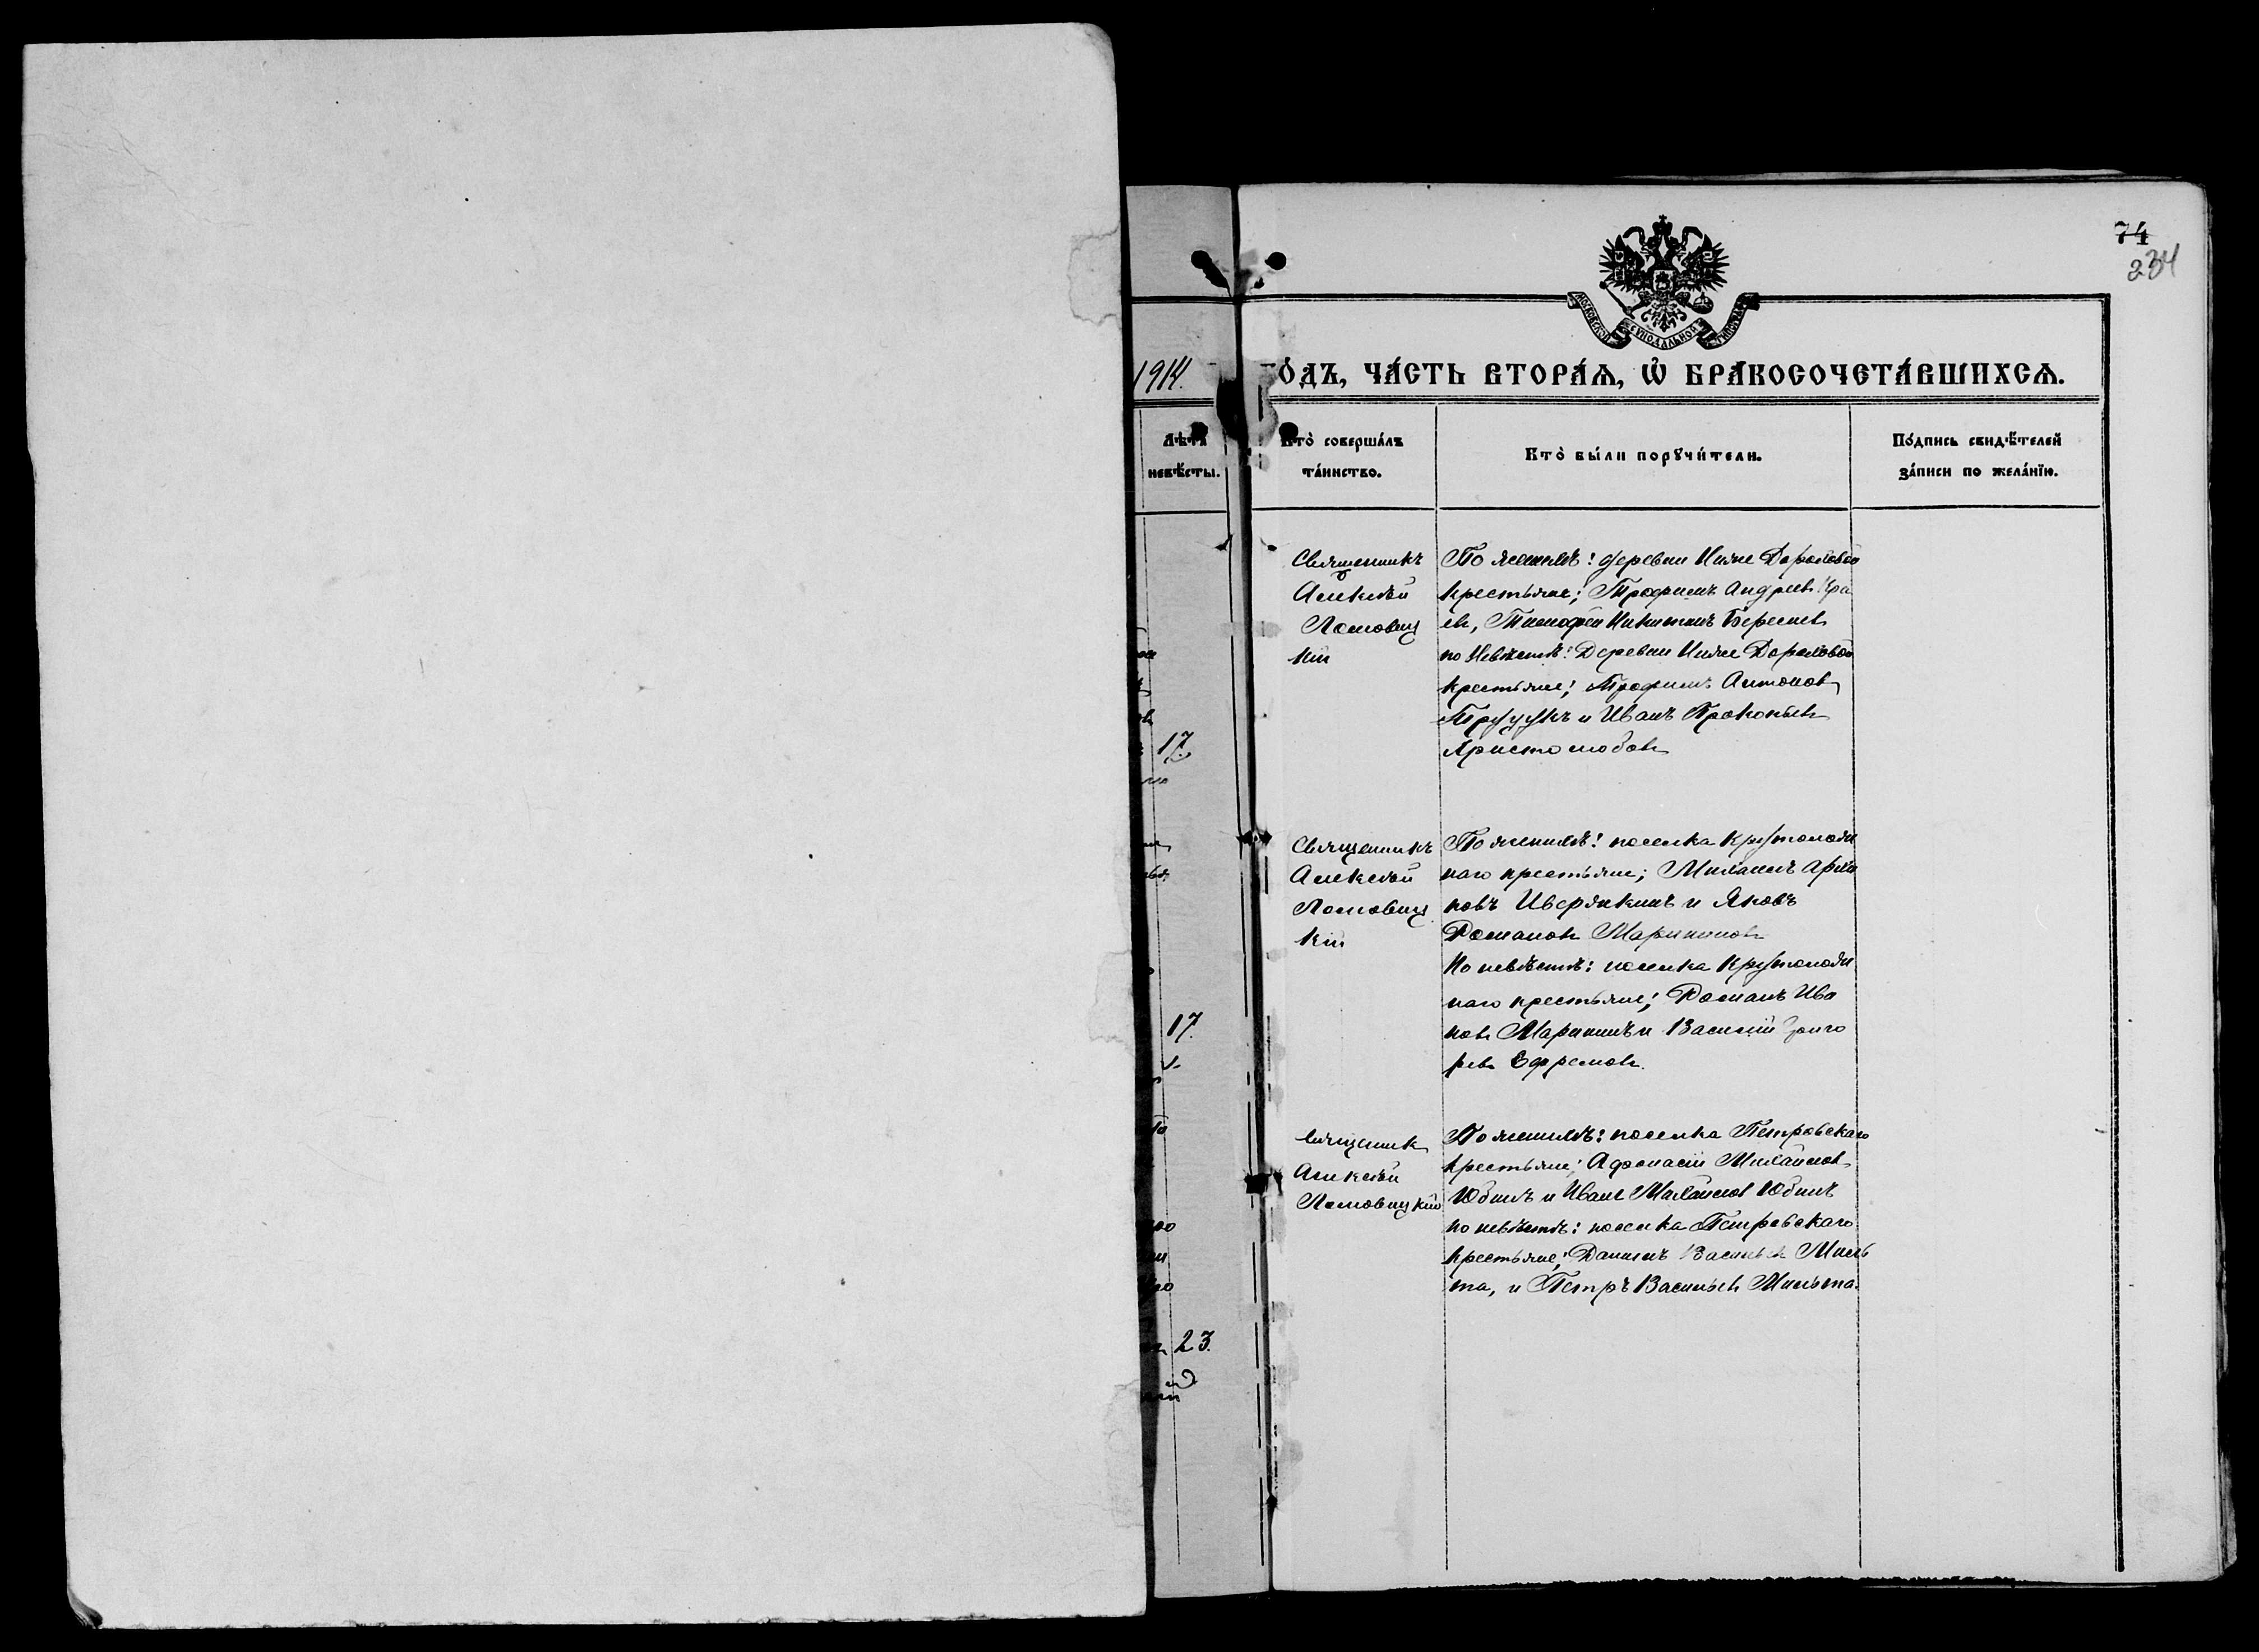 74
234
МОСКОВСКОЙ СѴНОДАЛЬНОЙ ТИПОГРАФІИ
1914. го́дъ, ча́сть втора́ѧ, ѡ҆ бракосочета́вшихсѧ.
Лѣта невѣ́сты.
Кто̀ соверша́лъ та́инство.
Кто̀ бы́ли порꙋчи́тели.
По́дпись свидѣ́телей за́писи по жела́нїю.
17
Священникъ
Алексѣй
Ломовиц
кій
По женихѣ: деревни Ниже
крестьяне; Трофимъ Андреев
ев, Тимофей Никитинъ
по Невѣстѣ: Деревни Ниже
крестьяне; Трофимъ Антонов
и Иванъ Прокопьев
Христолюбов
17.
Священникъ
Алексѣй
Ломовиц
кій
По женихѣ: поселка Крутолоди
наго крестьяне; Михаилъ
новъ Иверткинъ и Яковъ
Романов Марининов
По невѣстѣ: поселка Крутолоди
наго крестьяне; Романъ Ива
нов Марининъ и Василій Григо
рев Ефремов.
23.
Священник
Алексѣй
Ломовицкій
По женихѣ: поселка Петровскаго
крестьяне; Афонасій Михайлов
Юдинъ и Иванъ Михайлов Юдинъ
по невѣстѣ: поселка Петровскаго
крестьяне; Данилъ Васильев Миль
та, и Петръ Васильев Мильта.